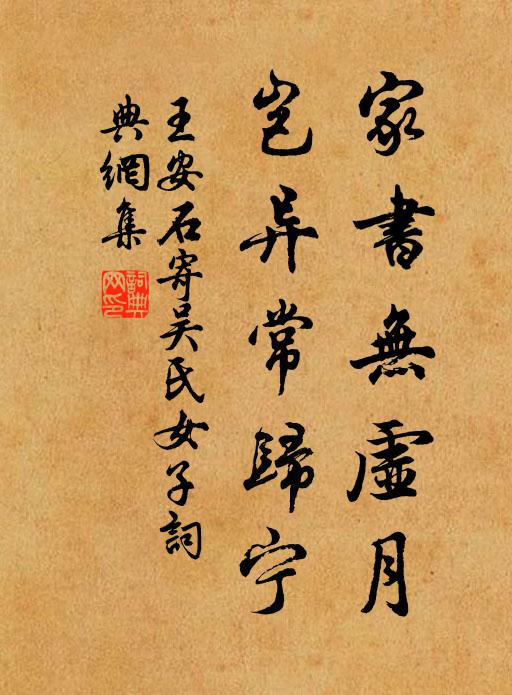 家書無虛月
豈异常歸宁
王安石寄吴氏女子詞
典網集
詞典
网印